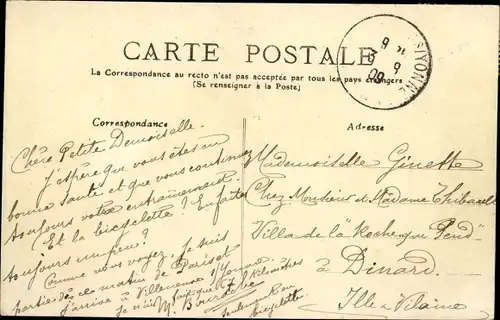 CARTE POSTALE
La Correspondance au recto n'est pas acceptée par tous les pays étrangers
(Se renseigner à la Poste)
Correspondance
Chère Petite Demoiselle.
J'espère que vous êtes en
bonne santé et que vous continuez
toujours votre entraînement.
Et la bicyclette? En faites
toujours un peu?
Comme vous voyez, je suis
partie dès ce matin de Paris et
j'arrive à Villeneuve s/Yonne
je n'ai fait que kilomètres
M. Bourdelle
bicyclette
Adresse
Mademoiselle Ginette
Chez Monsieur et Madame Thibault
Villa de la "Roche qui Pend"
à Dinard.
Ille & Vilaine